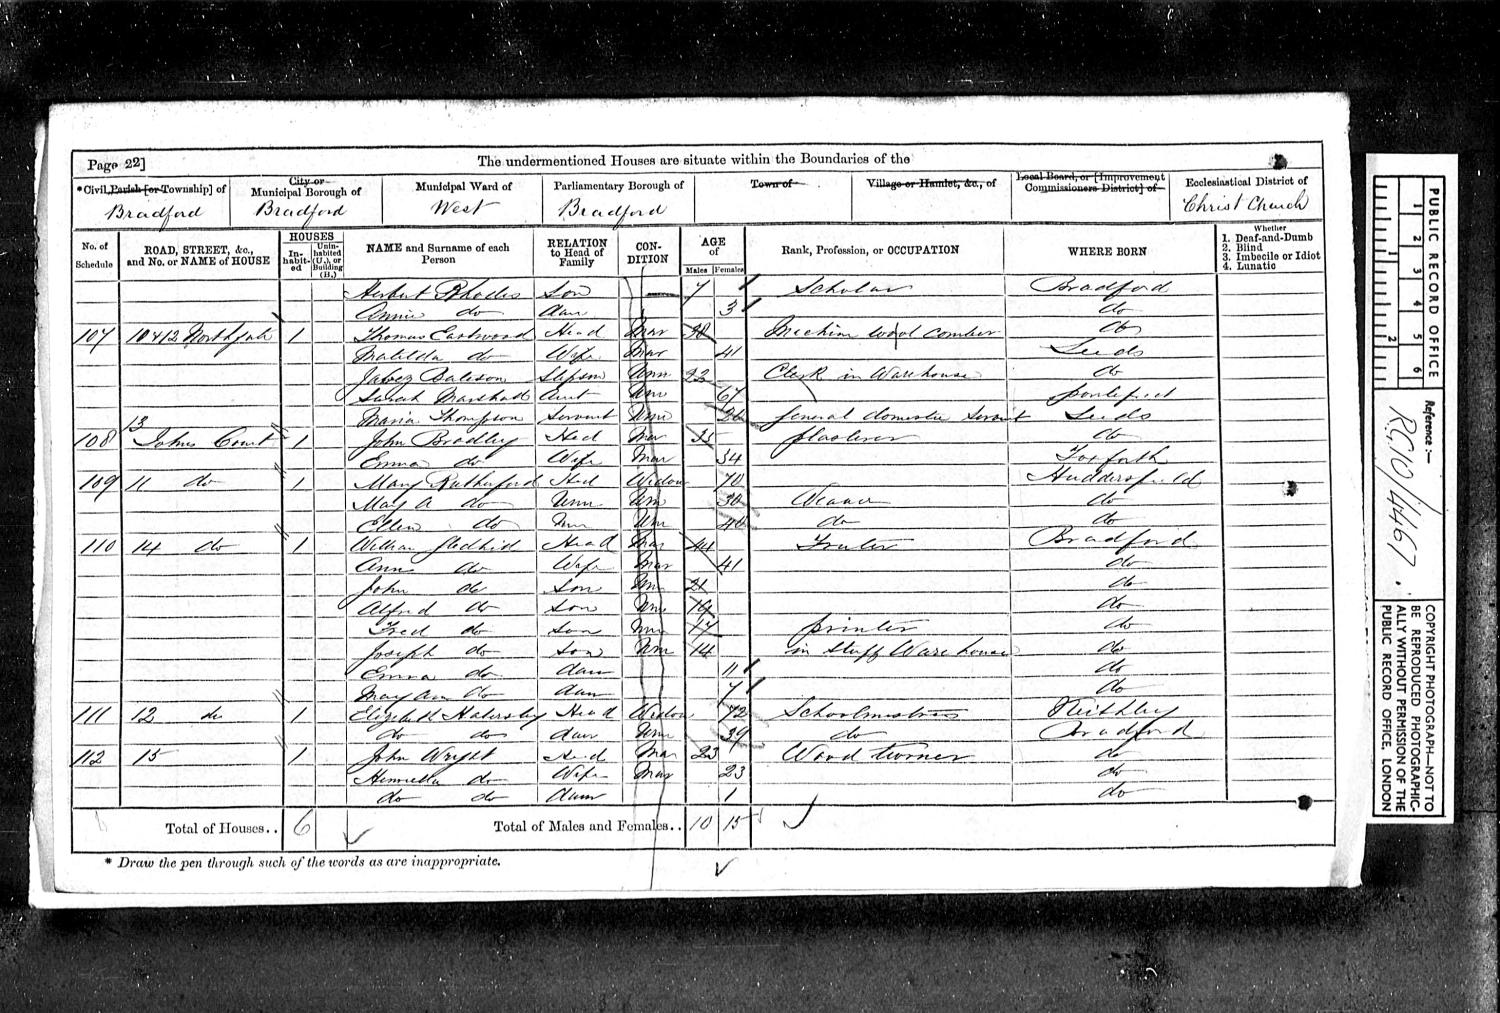 Page 22]
The undermentioned Houses are situate within the Boundaries of the
*Civil Parish [or Township] of
City or Municipal Borough of
Municipal Ward of
Parliamentary Borough of
Town of
Village or Hamlet, &c., of
Local Board, or [Improvement Commissioners District] of
Ecclesiastical District of
Bradford Bradford West Bradford Christ Church
No. of Schedule
ROAD, STREET, &c., and No. or NAME of HOUSE
HOUSES
In-habit-ed
Unin-habited (U.), or Building (B.)
NAME and Surname of each Person
RELATION to Head of Family
CON-DITION
AGE of
Males Females
Rank, Profession, or OCCUPATION
WHERE BORN
Whether
1. Deaf-and-Dumb
2. Blind
3. Imbecile or Idiot
4. Lunatic
Herbert Rhodes Son 7 Scholar Bradford
Annie do daur 3 do
107 10 & 12 Northgate 1 Thomas Eastwood Head Mar 38 wool comber do
Matilda do Wife Mar 41 Leeds
Jabez Stepson Unm 22 Clerk in Warehouse do
Sarah Marshall Aunt Unm 67
Maria Thompson Servant Unm General domestic Servant Leeds
108 13 Johns Court 1 John Bradley Hed Mar 35 plasterer do
Emma do Wife Mar 34
109 11 do 1 Mary Rutherford Hed Widow 70 Huddersfield
Mary A do Unm Unm do
Ellen do Unm do do
110 14 do 1 William Head Mar 44 Bradford
Ann do Wife Mar 41 do
John do Son Unm 21 do
Alfred do Son Unm 19 do
Fred do Son Unm 17 printer do
Joseph do Son Unm 14 in Stuff Warehouse do
Emma do daur 11 do
Mary Ann do daur 7 do
111 12 do 1 Elizabeth Head Widow 72 Schoolmistress
do do daur Unm 39 do Bradford
112 15 1 John Wright Hed Mar 23 Wood turner do
Henrietta do Wife Mar 23 do
do do daur 1 do
Total of Houses.. 6 Total of Males and Females.. 10 15
* Draw the pen through such of the words as are inappropriate.
PUBLIC RECORD OFFICE
1 2 3 4 5 6
1 2
Reference:—
RG10/4467
COPYRIGHT PHOTOGRAPH—NOT TO BE REPRODUCED PHOTOGRAPHICALLY WITHOUT PERMISSION OF THE PUBLIC RECORD OFFICE, LONDON